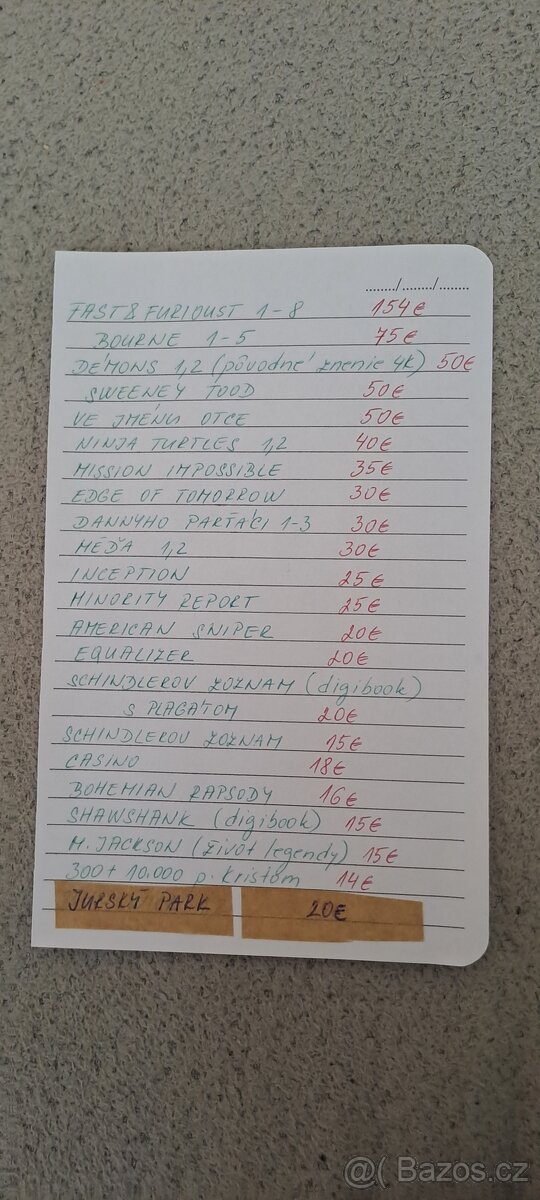 ......../......../........
FAST & FURIOUST 1-8 154€
BOURNE 1-5 75€
DÉMONS 1,2 (pôvodné znenie 4K) 50€
SWEENEY TODD 50€
VE JMÉNU OTCE 50€
NINJA TURTLES 1,2 40€
MISSION IMPOSSIBLE 35€
EDGE OF TOMORROW 30€
DANNYHO PARŤÁCI 1-3 30€
MÉĎA 1,2 30€
INCEPTION 25€
MINORITY REPORT 25€
AMERICAN SNIPER 20€
EQUALIZER 20€
SCHINDLEROV ZOZNAM (digibook)
S PLAGÁTOM 20€
SCHINDLEROV ZOZNAM 15€
CASINO 18€
BOHEMIAN RAPSODY 16€
SHAWSHANK (digibook) 15€
M. JACKSON (život legendy) 15€
300 + 10.000 p. kristom 14€
JURSKÝ PARK 20€
@( Bazos.cz